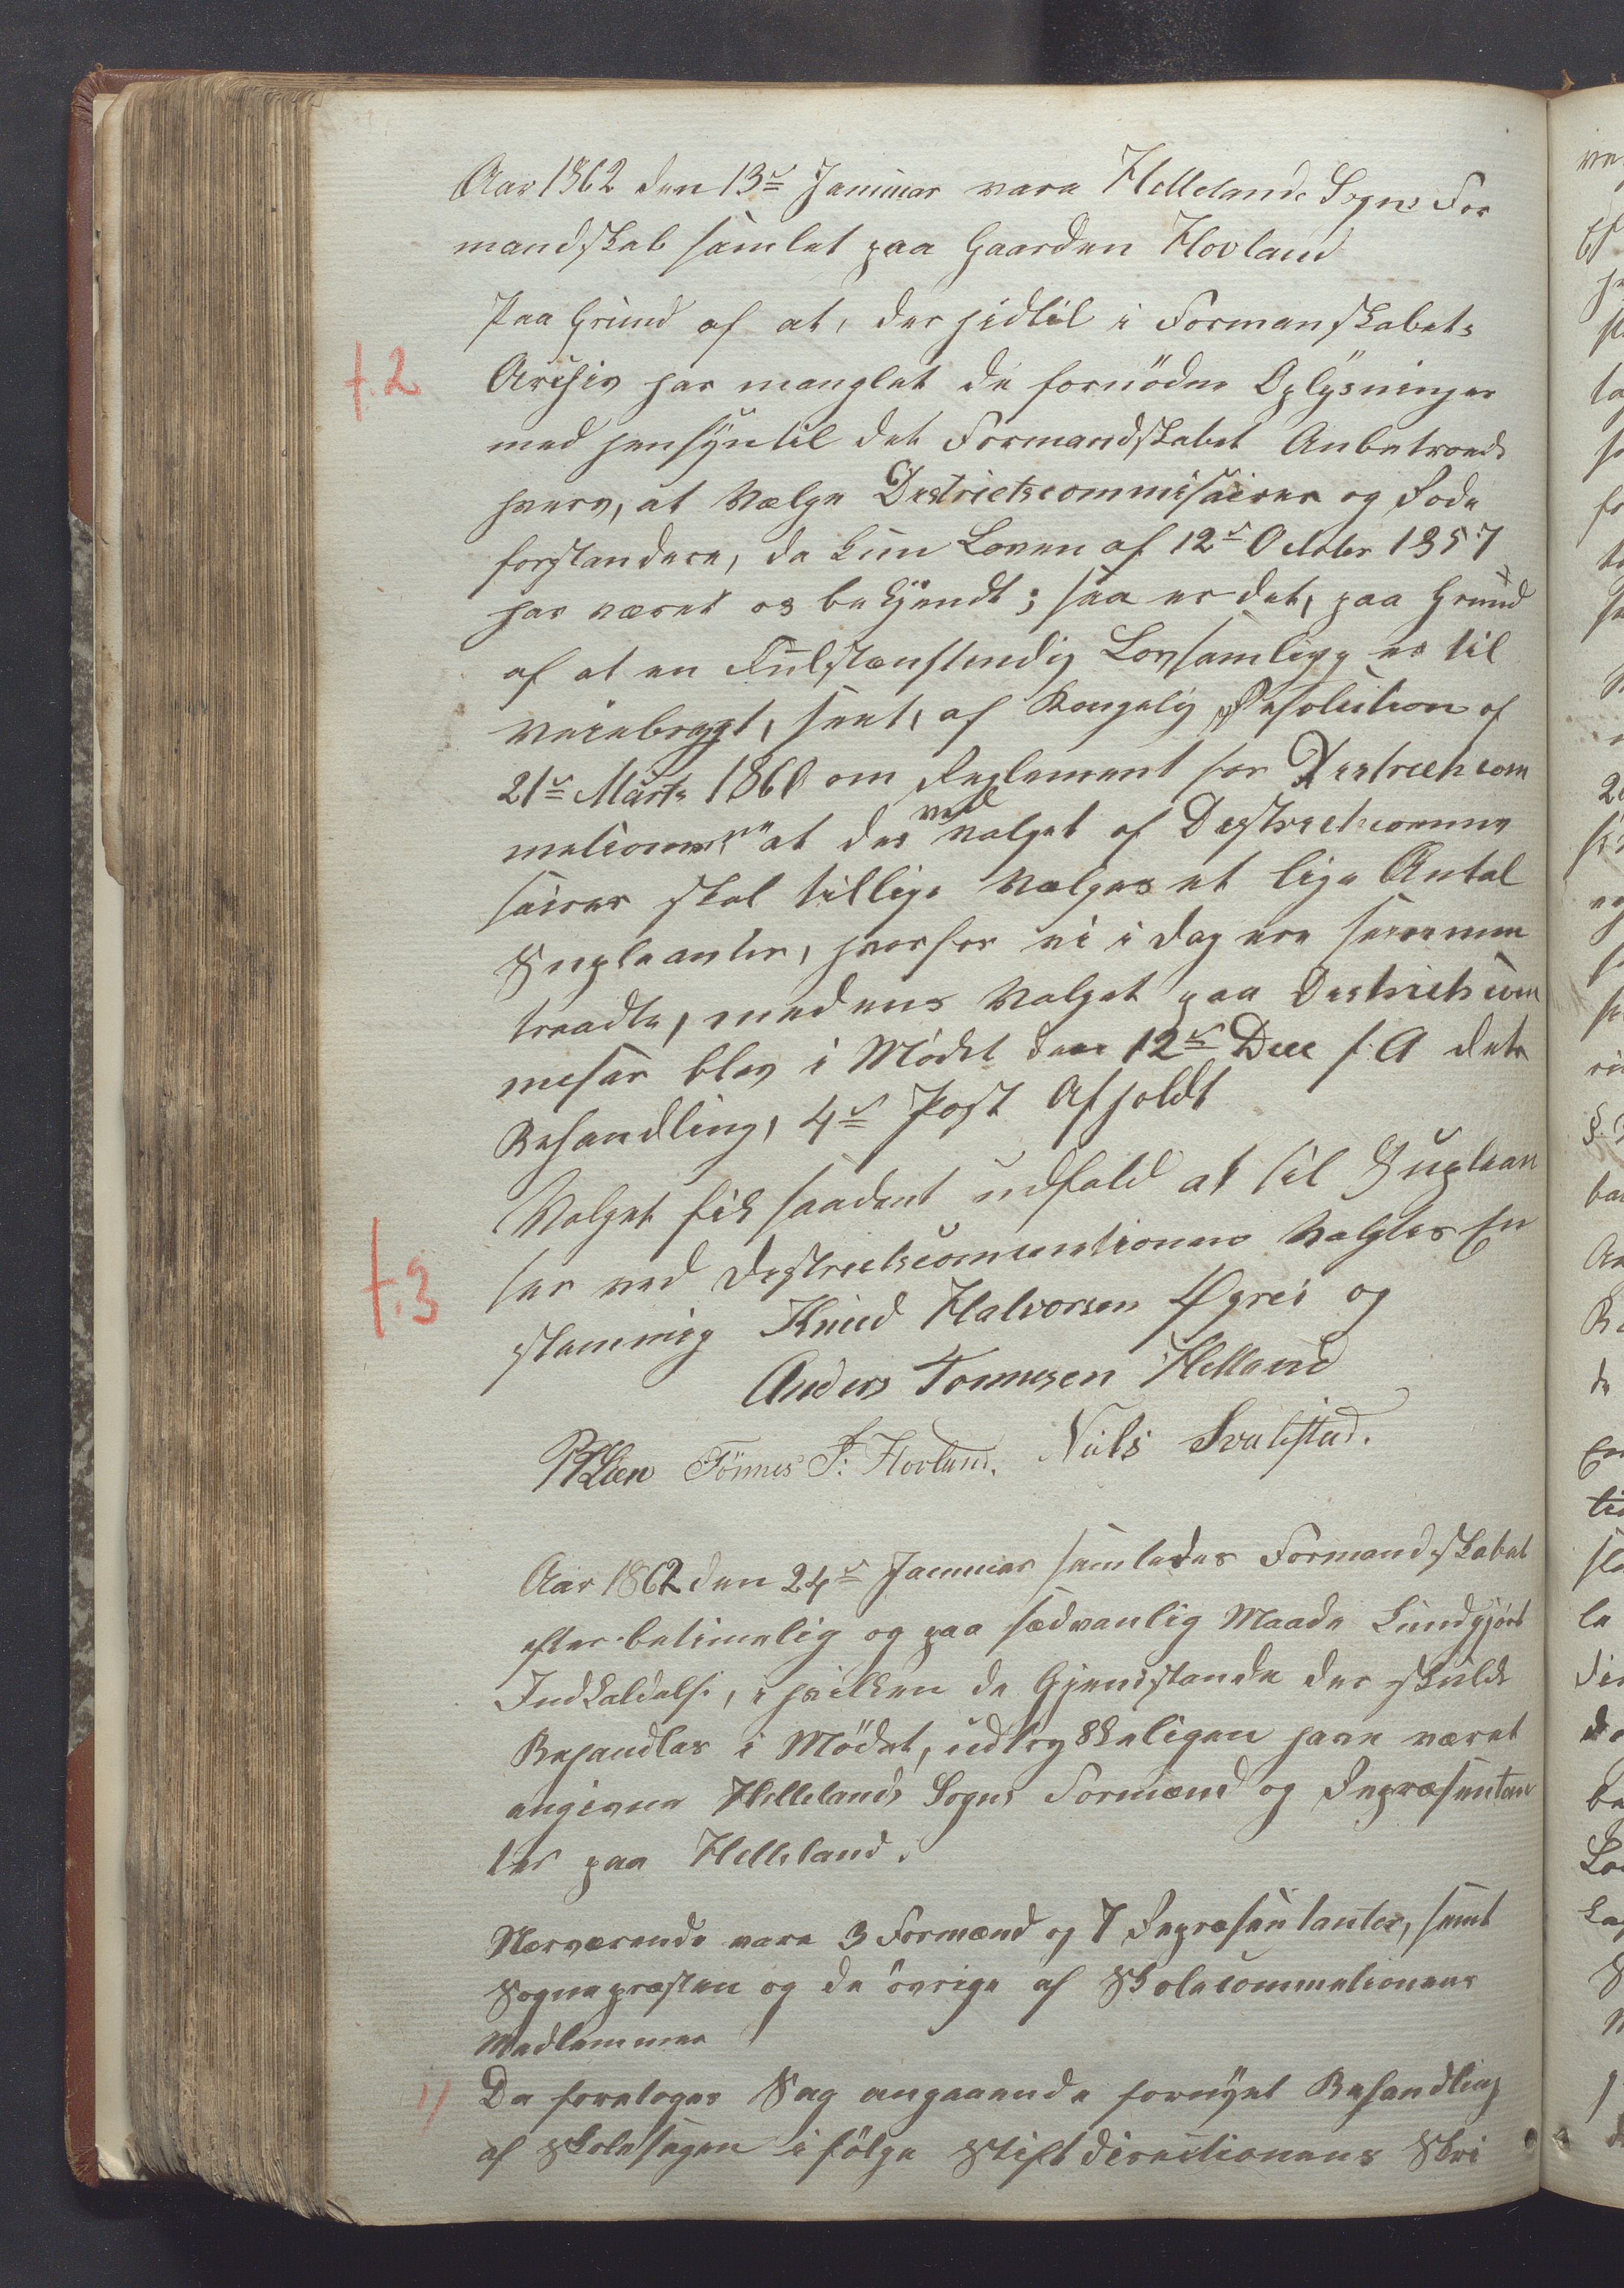 Aar 1862 den 13de Januar vare Hellelands Sogns For
mandskab samlet paa Gaarden Hovland
Paa Grund af at, der hidtil i Formanskabets
f.2
Archiv har manglet de fornödne Oplysninger
med hensyn til det Formandskabet Anbetroede
hverv, at Vælge Destrictscommisairer og Rode
forstandere, da kun Loven af 12te October 1857
har været os bekjendt; saa er det, paa Grund
af at en Fulstænstendig Lovsamligg er til
veiebragt, seet, af Kongelig Resolution af
21de Marts 1860 om Reglement for Destrictscom
metioner" at der ved valget af Destrictscomme
sairer skal tillige Vælges et lige Antal
Supleanter, hvorfor vi i dag ere sammen
traadte, medens Valget paa Destrictscom
mesar blev i Mödet den 12te Dec f:A dets
Behandling, 4de Post Afholdt
Valget fik saadant udfald at til Suplean
f.3
ter ved Destrictscommentionen Valgtes En
stemmig Knud Halvorsen Øgrei og
Anders Tonnesen Helland
Tönnes P: Hovland. Niels Svalestad.
Aar 1862 den 24de Januar samledes Formandskabet
efter betimelig og paa sædvanlig Maade kundgjört
Indkaldelse, i hvilken de Gjenstande der skulde
Behandles i Mödet, udtrykkeligen have været
angivne Hellelands Sogns Formænd og Repræsentan
ter paa Helleland.
Nærværende vare 3 Formænd og 7 Repræsentanter, samt
Sognepræsten og de övrige af Skolecommetionens
Medlemmer
1/ Da foretoges Sag angaaende fornyet Behandling
af Skolesagen i fölge Stiftdirectionens Skri